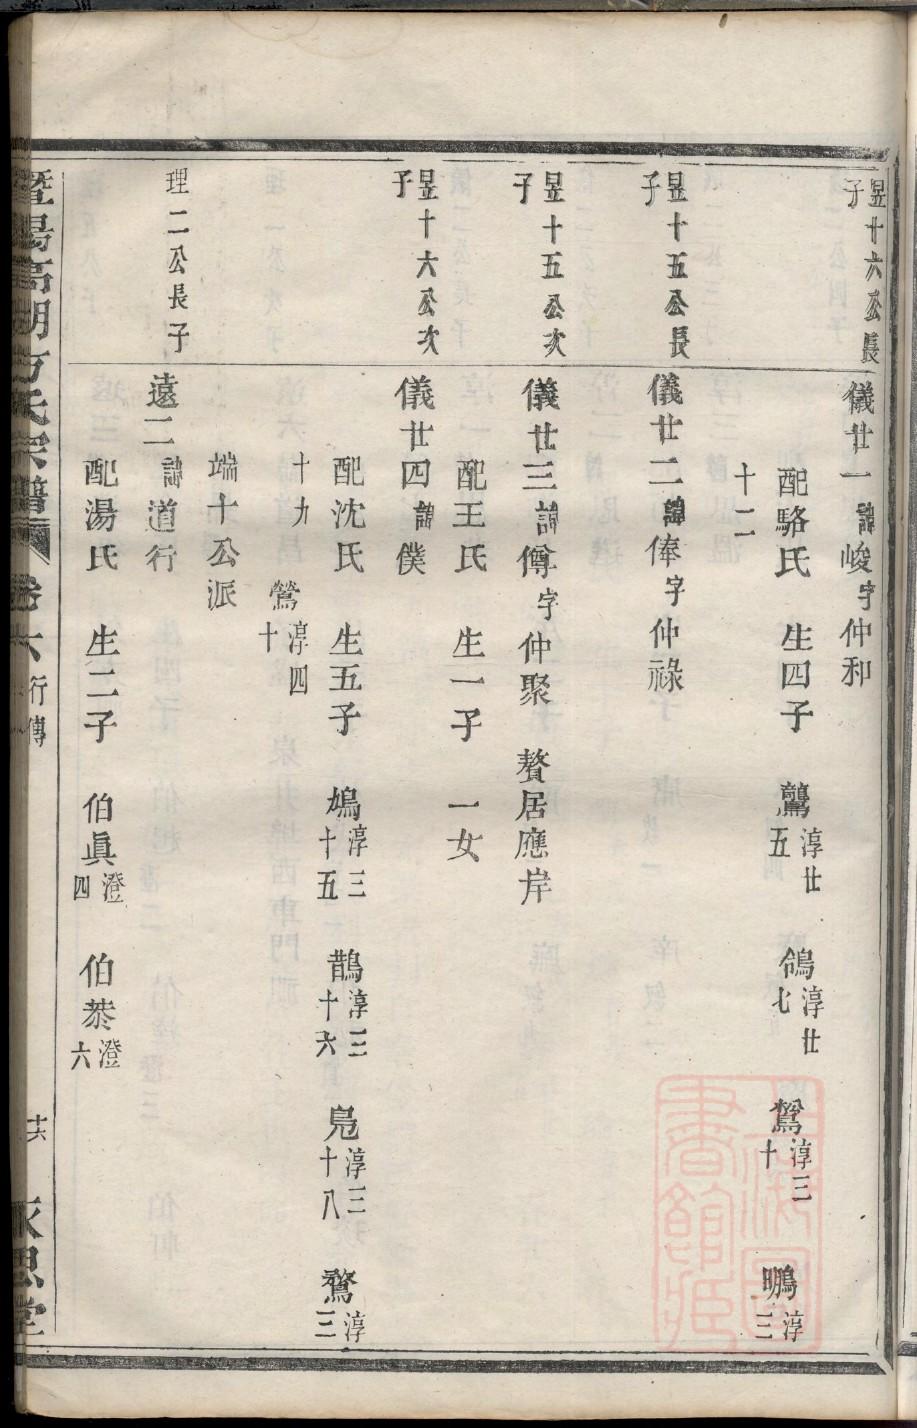 昱十六公長
子
儀廿一諱峻字仲和
配駱氏 生四子 鷟淳廿五 鴿淳廿七 鴛淳三十 鵬淳三
十二
昱十五公長
子
儀廿二諱俸字仲祿
昱十五公次
子
儀廿三諱僔字仲聚 贅居應岸
配王氏 生一子 一女
昱十六公次
子
儀廿四諱僕
配沈氏 生五子 鳩淳三十五 鵲淳三十六 鳧淳三十八 鶩淳三
十九 鶯淳四十
端十公派
理二公長子
遠二諱道行
配湯氏 生二子 伯眞澄四 伯恭澄六
暨陽高湖方氏宗譜 卷六 行傳 十六 永思堂